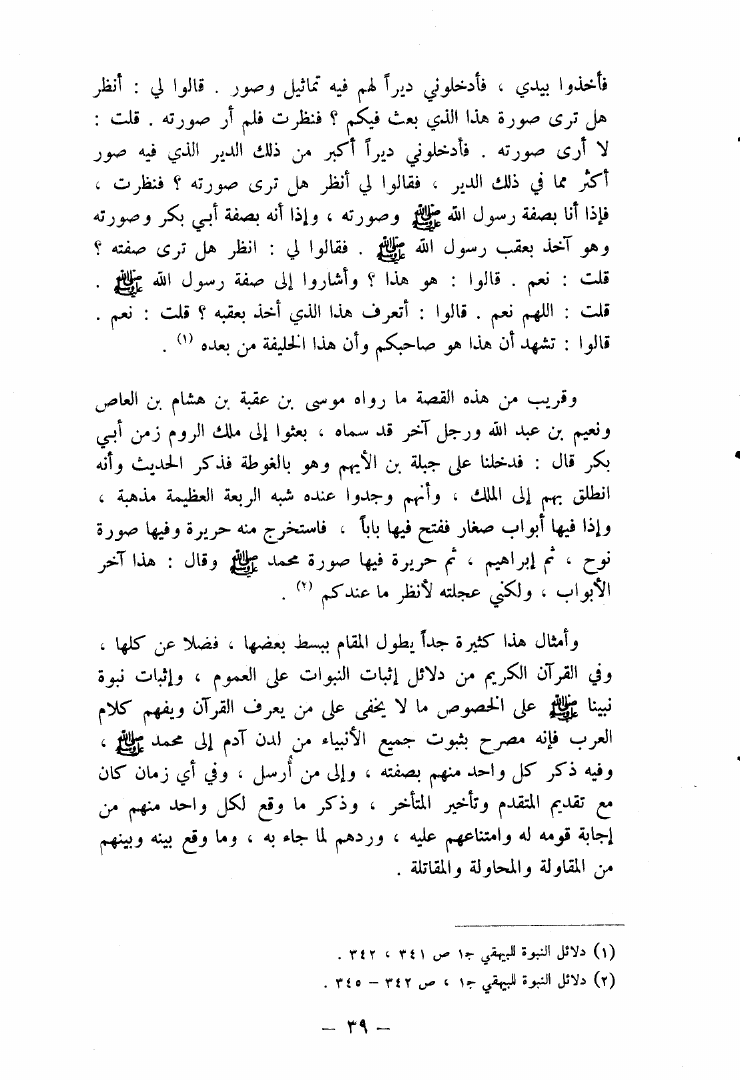 فأخذوا بيدي ، فأدخلوني ديراً لهم فيه تماثيل وصور . قالوا لي : أنظر
هل ترى صورة هذا الذي بعث فيكم ؟ فنظرت فلم أر صورته . قلت :
لا أرى صورته . فأدخلوني ديراً أكبر من ذلك الدير الذي فيه صور
أكثر مما في ذلك الدير ، فقالوا لي أنظر هل ترى صورته ؟ فنظرت ،
فإذا أنا بصفة رسول الله ﷺ وصورته ، وإذا أنه بصفة أبي بكر وصورته
وهو آخذ بعقب رسول الله ﷺ . فقالوا لي : انظر هل ترى صفته ؟
قلت : نعم . قالوا : هو هذا ؟ وأشاروا إلى صفة رسول الله ﷺ .
قلت : اللهم نعم . قالوا : أتعرف هذا الذي أخذ بعقبه ؟ قلت : نعم .
قالوا : تشهد أن هذا هو صاحبكم وأن هذا الخليفة من بعده (١) .
وقريب من هذه القصة ما رواه موسى بن عقبة بن هشام بن العاص
ونعيم بن عبد الله ورجل آخر قد سماه ، بعثوا إلى ملك الروم زمن أبي
بكر قال : فدخلنا على جبلة بن الأيهم وهو بالغوطة فذكر الحديث وأنه
انطلق بهم إلى الملك ، وأنهم وجدوا عنده شبه الربعة العظيمة مذهبة ،
وإذا فيها أبواب صغار ففتح فيها باباً ، فاستخرج منه حريرة وفيها صورة
نوح ، ثم إبراهيم ، ثم حريرة فيها صورة محمد ﷺ وقال : هذا آخر
الأبواب ، ولكني عجلته لأنظر ما عندكم (٢) .
وأمثال هذا كثيرة جداً يطول المقام ببسط بعضها ، فضلا عن كلها ،
وفي القرآن الكريم من دلائل إثبات النبوات على العموم ، وإثبات نبوة
نبينا ﷺ على الخصوص ما لا يخفى على من يعرف القرآن ويفهم كلام
العرب فإنه مصرح بثبوت جميع الأنبياء من لدن آدم إلى محمد ﷺ ،
وفيه ذكر كل واحد منهم بصفته ، وإلى من أُرسل ، وفي أي زمان كان
مع تقديم المتقدم وتأخير المتأخر ، وذكر ما وقع لكل واحد منهم من
إجابة قومه له وامتناعهم عليه ، وردهم لما جاء به ، وما وقع بينه وبينهم
من المقاولة والمحاولة والمقاتلة .
(١) دلائل النبوة للبيهقي ج١ ص ٣٤١ ، ٣٤٢ .
(٢) دلائل النبوة للبيهقي ج١ ، ص ٣٤٢ – ٣٤٥ .
– ٣٩ –